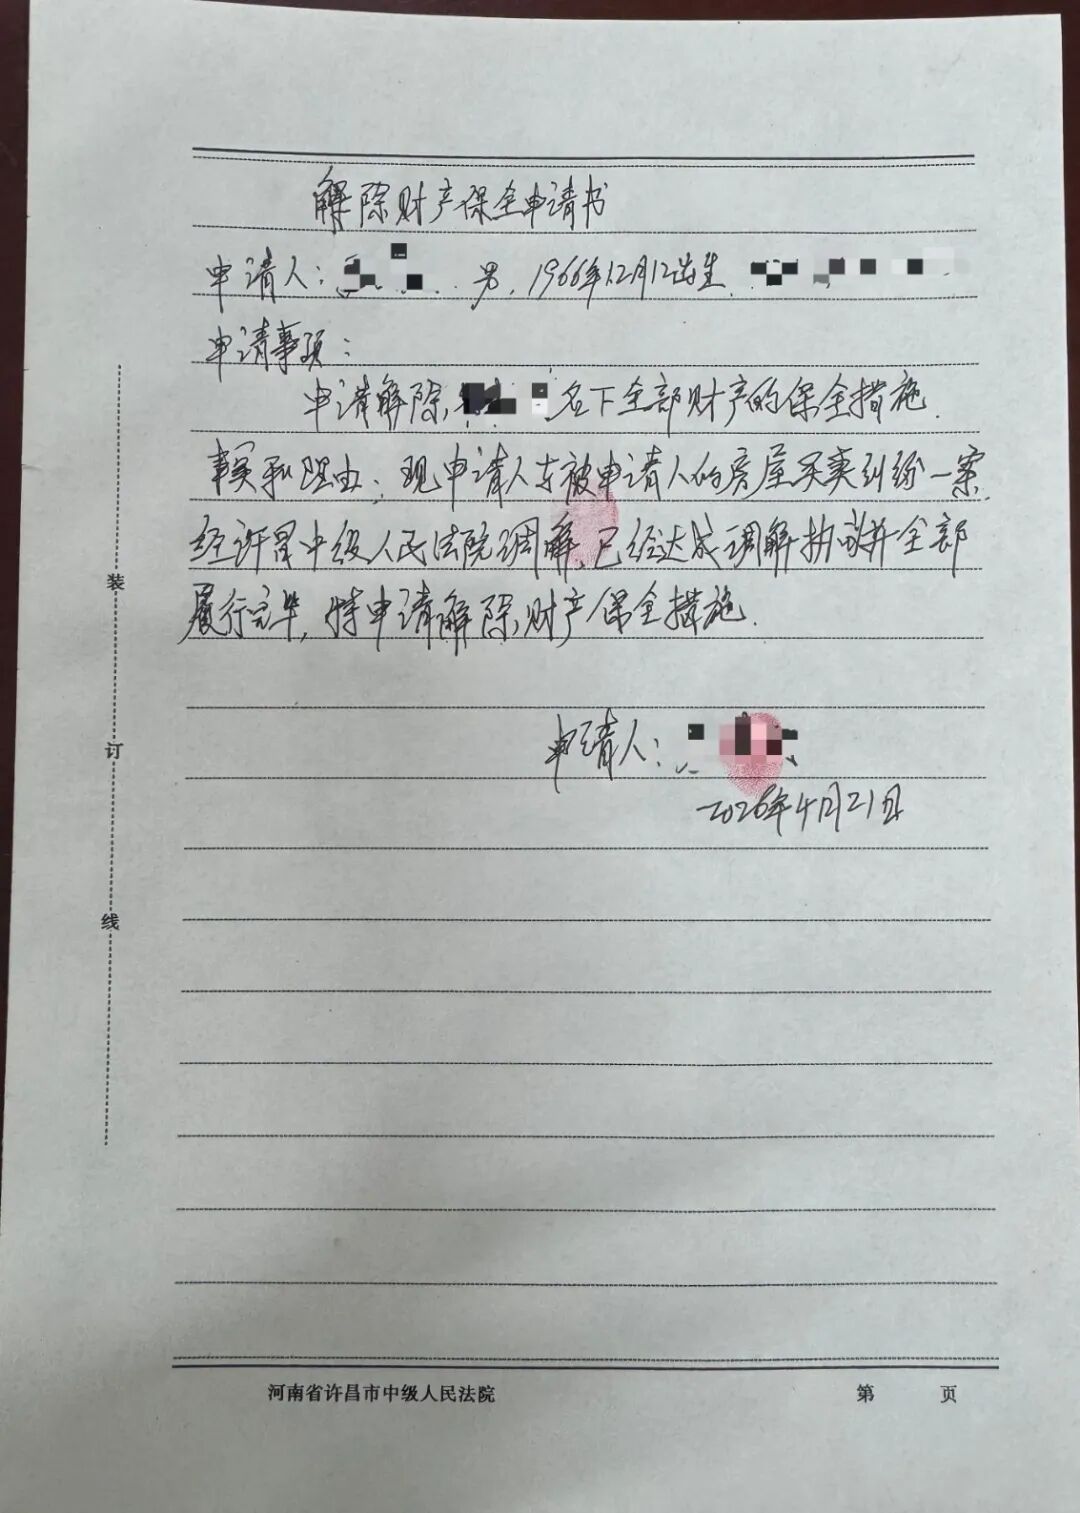 解除财产保全申请书
申请人: 男,1966年12月12出生
申请事项:
申请解除 名下全部财产的保全措施.
事实和理由:现申请人与被申请人的房屋买卖纠纷一案,
经许昌中级人民法院调解,已经达成调解协议并全部
履行完毕,特申请解除财产保全措施.
申请人:
2026年4月21日
装
订
线
河南省许昌市中级人民法院 第 页